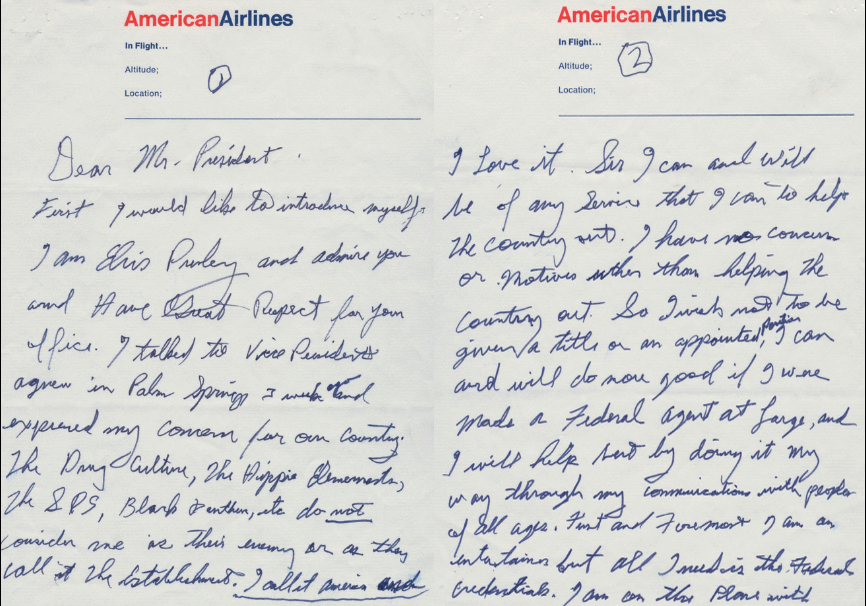 AmericanAirlines
In Flight...
Altitude;
Location;
1
Dear Mr. President.
First I would like to introduce myself.
I am Elvis Presley and admire you
and Have Great Respect for your
office. I talked to Vice President
agnew in Palm Springs 3 weeks ago and
expressed my concern for our country.
The Drug Culture, The Hippie Elements,
the SDS, Black Panthers, etc do not
consider me as their enemy or as they
call it the Establishment. I call it america and
AmericanAirlines
In Flight...
Altitude;
Location;
2
I Love it. Sir I can and will
be of any Service that I can to help
the country out. I have no concerns
or motives other than helping the
country out. So I wish not to be
given a title or an appointed position, I can
and will do more good if I were
made a Federal agent at Large, and
I will help but by doing it my
way through my communications with people
of all ages. First and Foremost I am an
entertainer but all I need is the Federal
credentials. I am on the Plane with